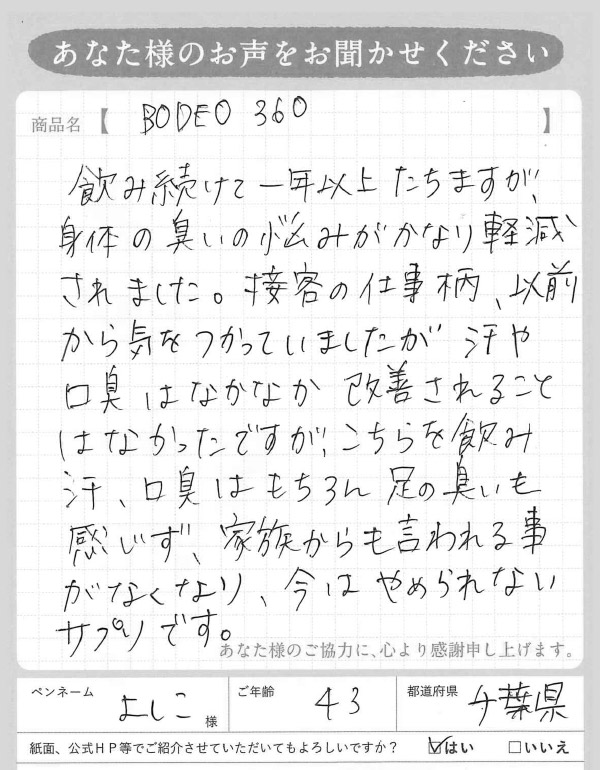 あなた様のお声をお聞かせください
商品名【 BODEO 360 】
飲み続けて一年以上たちますが、
身体の臭いの悩みがかなり軽減
されました。接客の仕事柄、以前
から気をつかっていましたが 汗や
口臭はなかなか 改善されること
はなかったですが、こちらを飲み
汗、口臭はもちろん 足の臭いも
感じず、家族からも言われる事
がなくなり、今は やめられない
サプリです。
あなた様のご協力に、心より感謝申し上げます。
ペンネーム よしこ 様 ご年齢 43 都道府県 千葉県
紙面、公式HP等でご紹介させていただいてもよろしいですか? ☑はい □いいえ